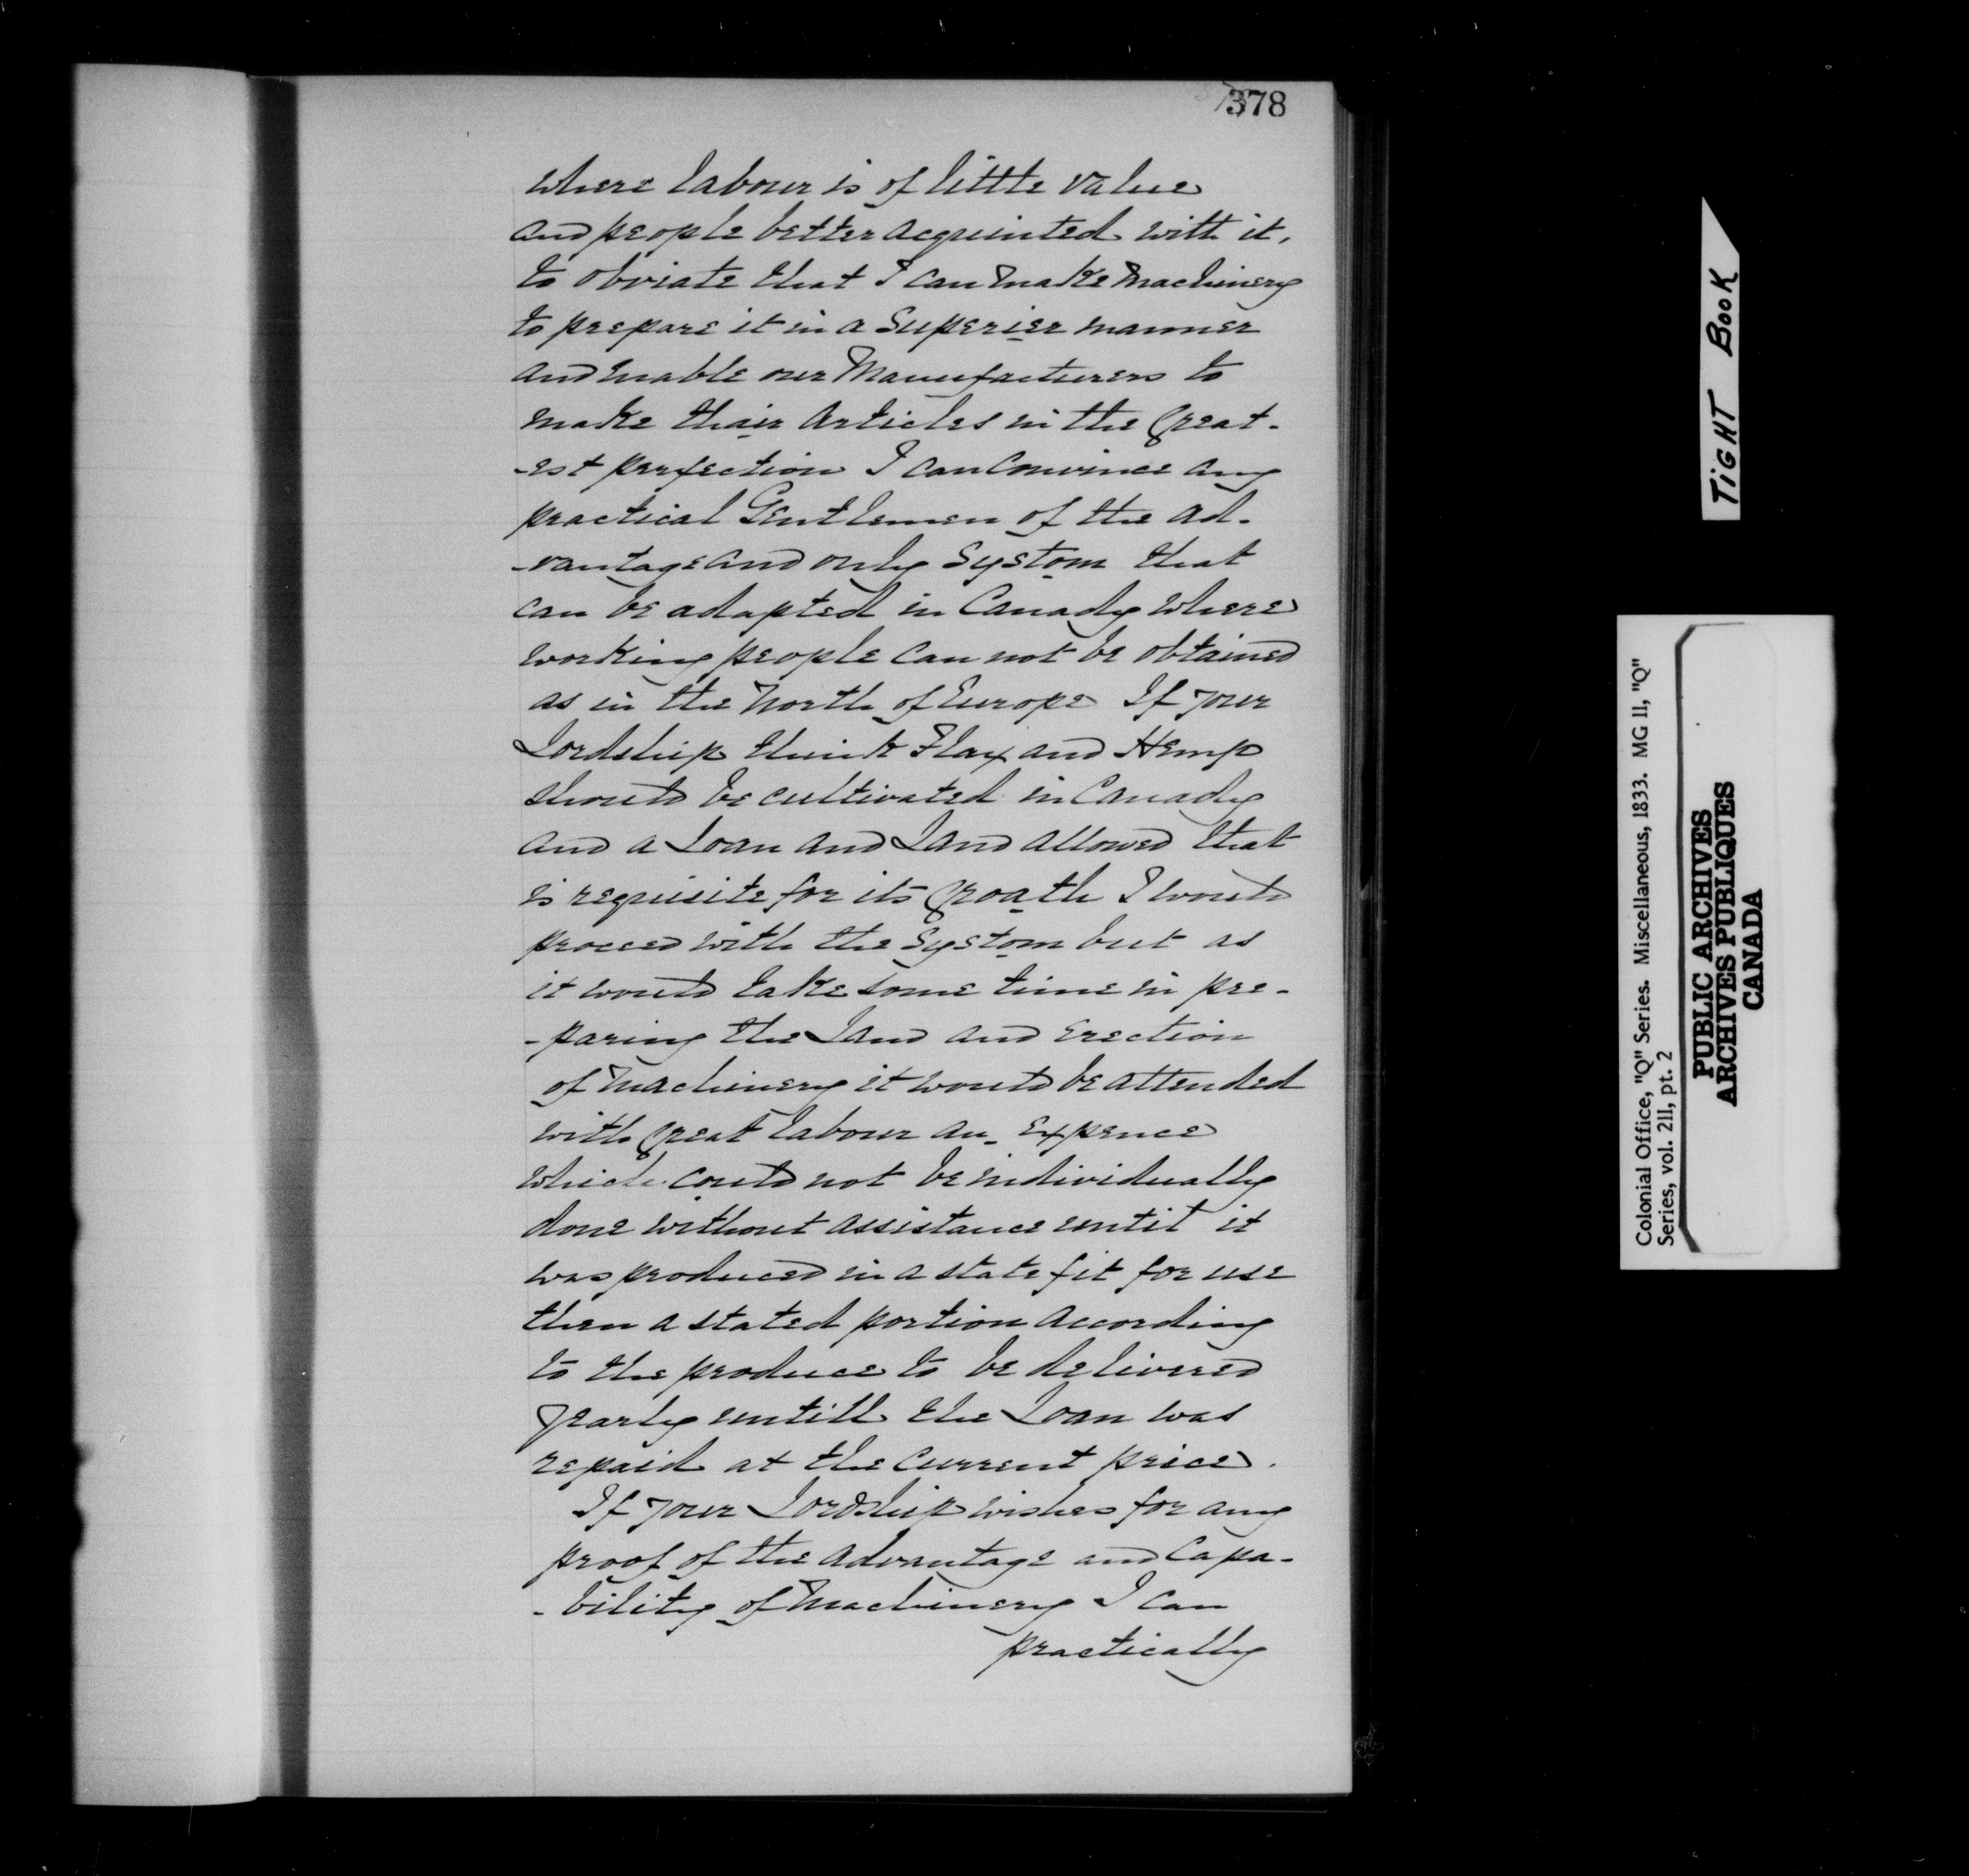 378
where labour is of little value
and people better acquinted with it.
to obviate that I can make Machinery
to prepare it in a Superier manner
and enable our Manufacturers to
make thair Articles in the Great-
-est perfection I can Convince any
practical Gentlemen of the ad-
-vantage and only Systom that
can be adapted in Canady where
working people can not be obtained
as in the North of Europe If your
Lordship think Flax and Hemp
should be cultivated in Canady
and a Loan and Land allowed that
is requisite for its Groath I would
proceed with the Systom but as
it would take some time in pre-
-paring the Land and Erection
of Machinery it would be attended
with Great labour an Expence
which could not be individually
done without assistance until it
was produced in a state fit for use
then a stated portion according
to the produce to be delivered
Yearly untill the Loan was
repaid at the Current price.
If your Lordship wishes for any
proof of the advantage and Capa-
-bility of Machinery I can
practically
TIGHT BOOK
Colonial Office, "Q" Series. Miscellaneous, 1833. MG 11, "Q"
Series, vol. 211, pt. 2
PUBLIC ARCHIVES
ARCHIVES PUBLIQUES
CANADA